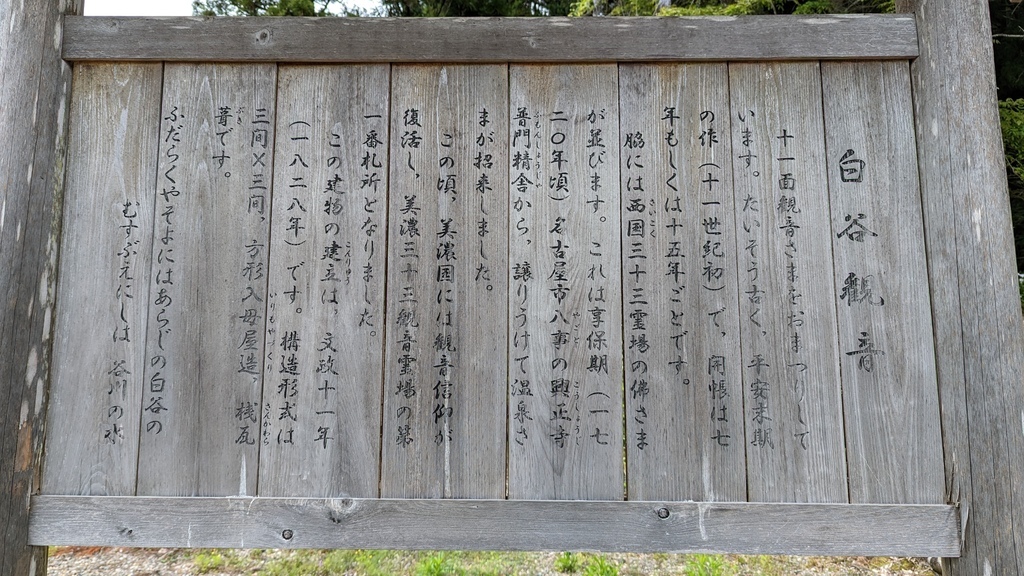 白谷観音
十一面観音さまをおまつりして
います。たいそう古く、平安末期
の作（十一世紀初）で、開帳は七
年もしくは十五年ごとです。
脇には西国三十三霊場の佛さま
が並びます。これは享保期（一七
二〇年頃）名古屋市八事の興正寺
普門精舎から、譲りうけて温泉さ
まが招来しました。
この頃、美濃国には観音信仰が
復活し、美濃三十三観音霊場の第
一番札所となりました。
この建物の建立は、文政十一年
（一八二八年）です。構造形式は
三間×三間、方形入母屋造、桟瓦
葺です。
ふだらくやそよにはあらじの白谷の
むすぶえにしは 谷川の水